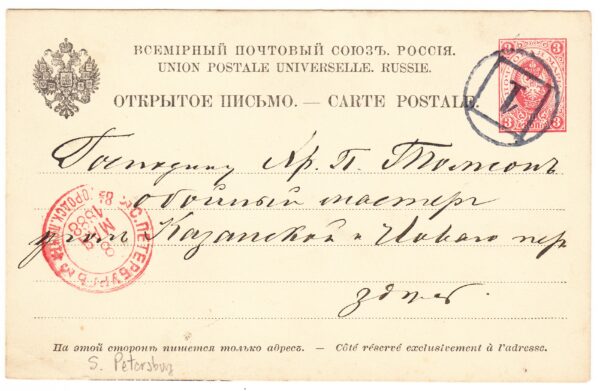 ВСЕМІРНЫЙ ПОЧТОВЫЙ СОЮЗЪ. РОССІЯ.
UNION POSTALE UNIVERSELLE. RUSSIE.
ОТКРЫТОЕ ПИСЬМО. — CARTE POSTALE.
3 3
1
3 3
Господину Хр. П. Томсонъ
обойный мастеръ
уголъ Казанской и Новаго пер
здѣсь
С.ПЕТЕРБУРГЪ
8
МАЯ
1888
На этой сторонѣ пишется только адресъ. — Côté réservé exclusivement à l'adresse.
S. Petersburg